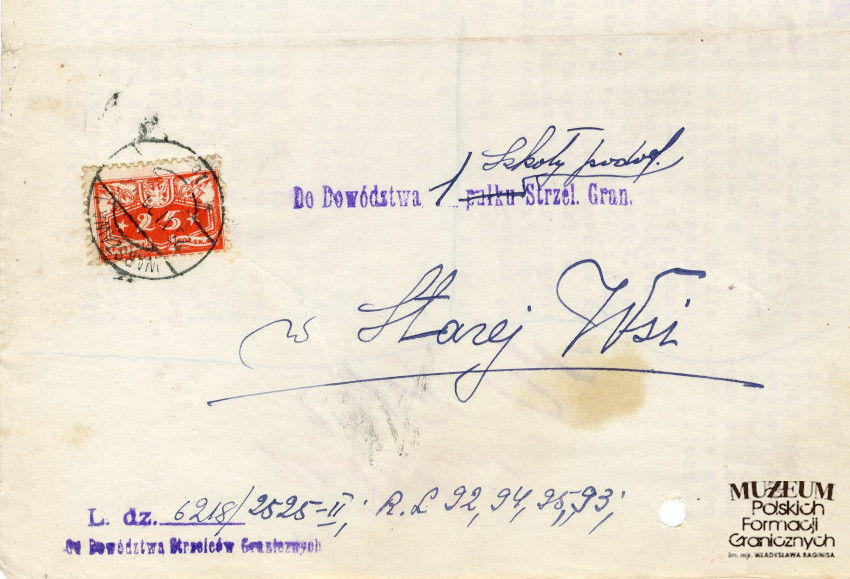 Szkoły podof.
Do Dowództwa 1 pułku Strzel. Gran.
w Starej Wsi
25
WARSZAWA
L. dz. 6218/2525-II; R.L 92, 94, 95, 93;
Od Dowództwa Strzelców Granicznych
MUZEUM
Polskich
Formacji
Granicznych
im. mjr. WŁADYSŁAWA RAGINISA